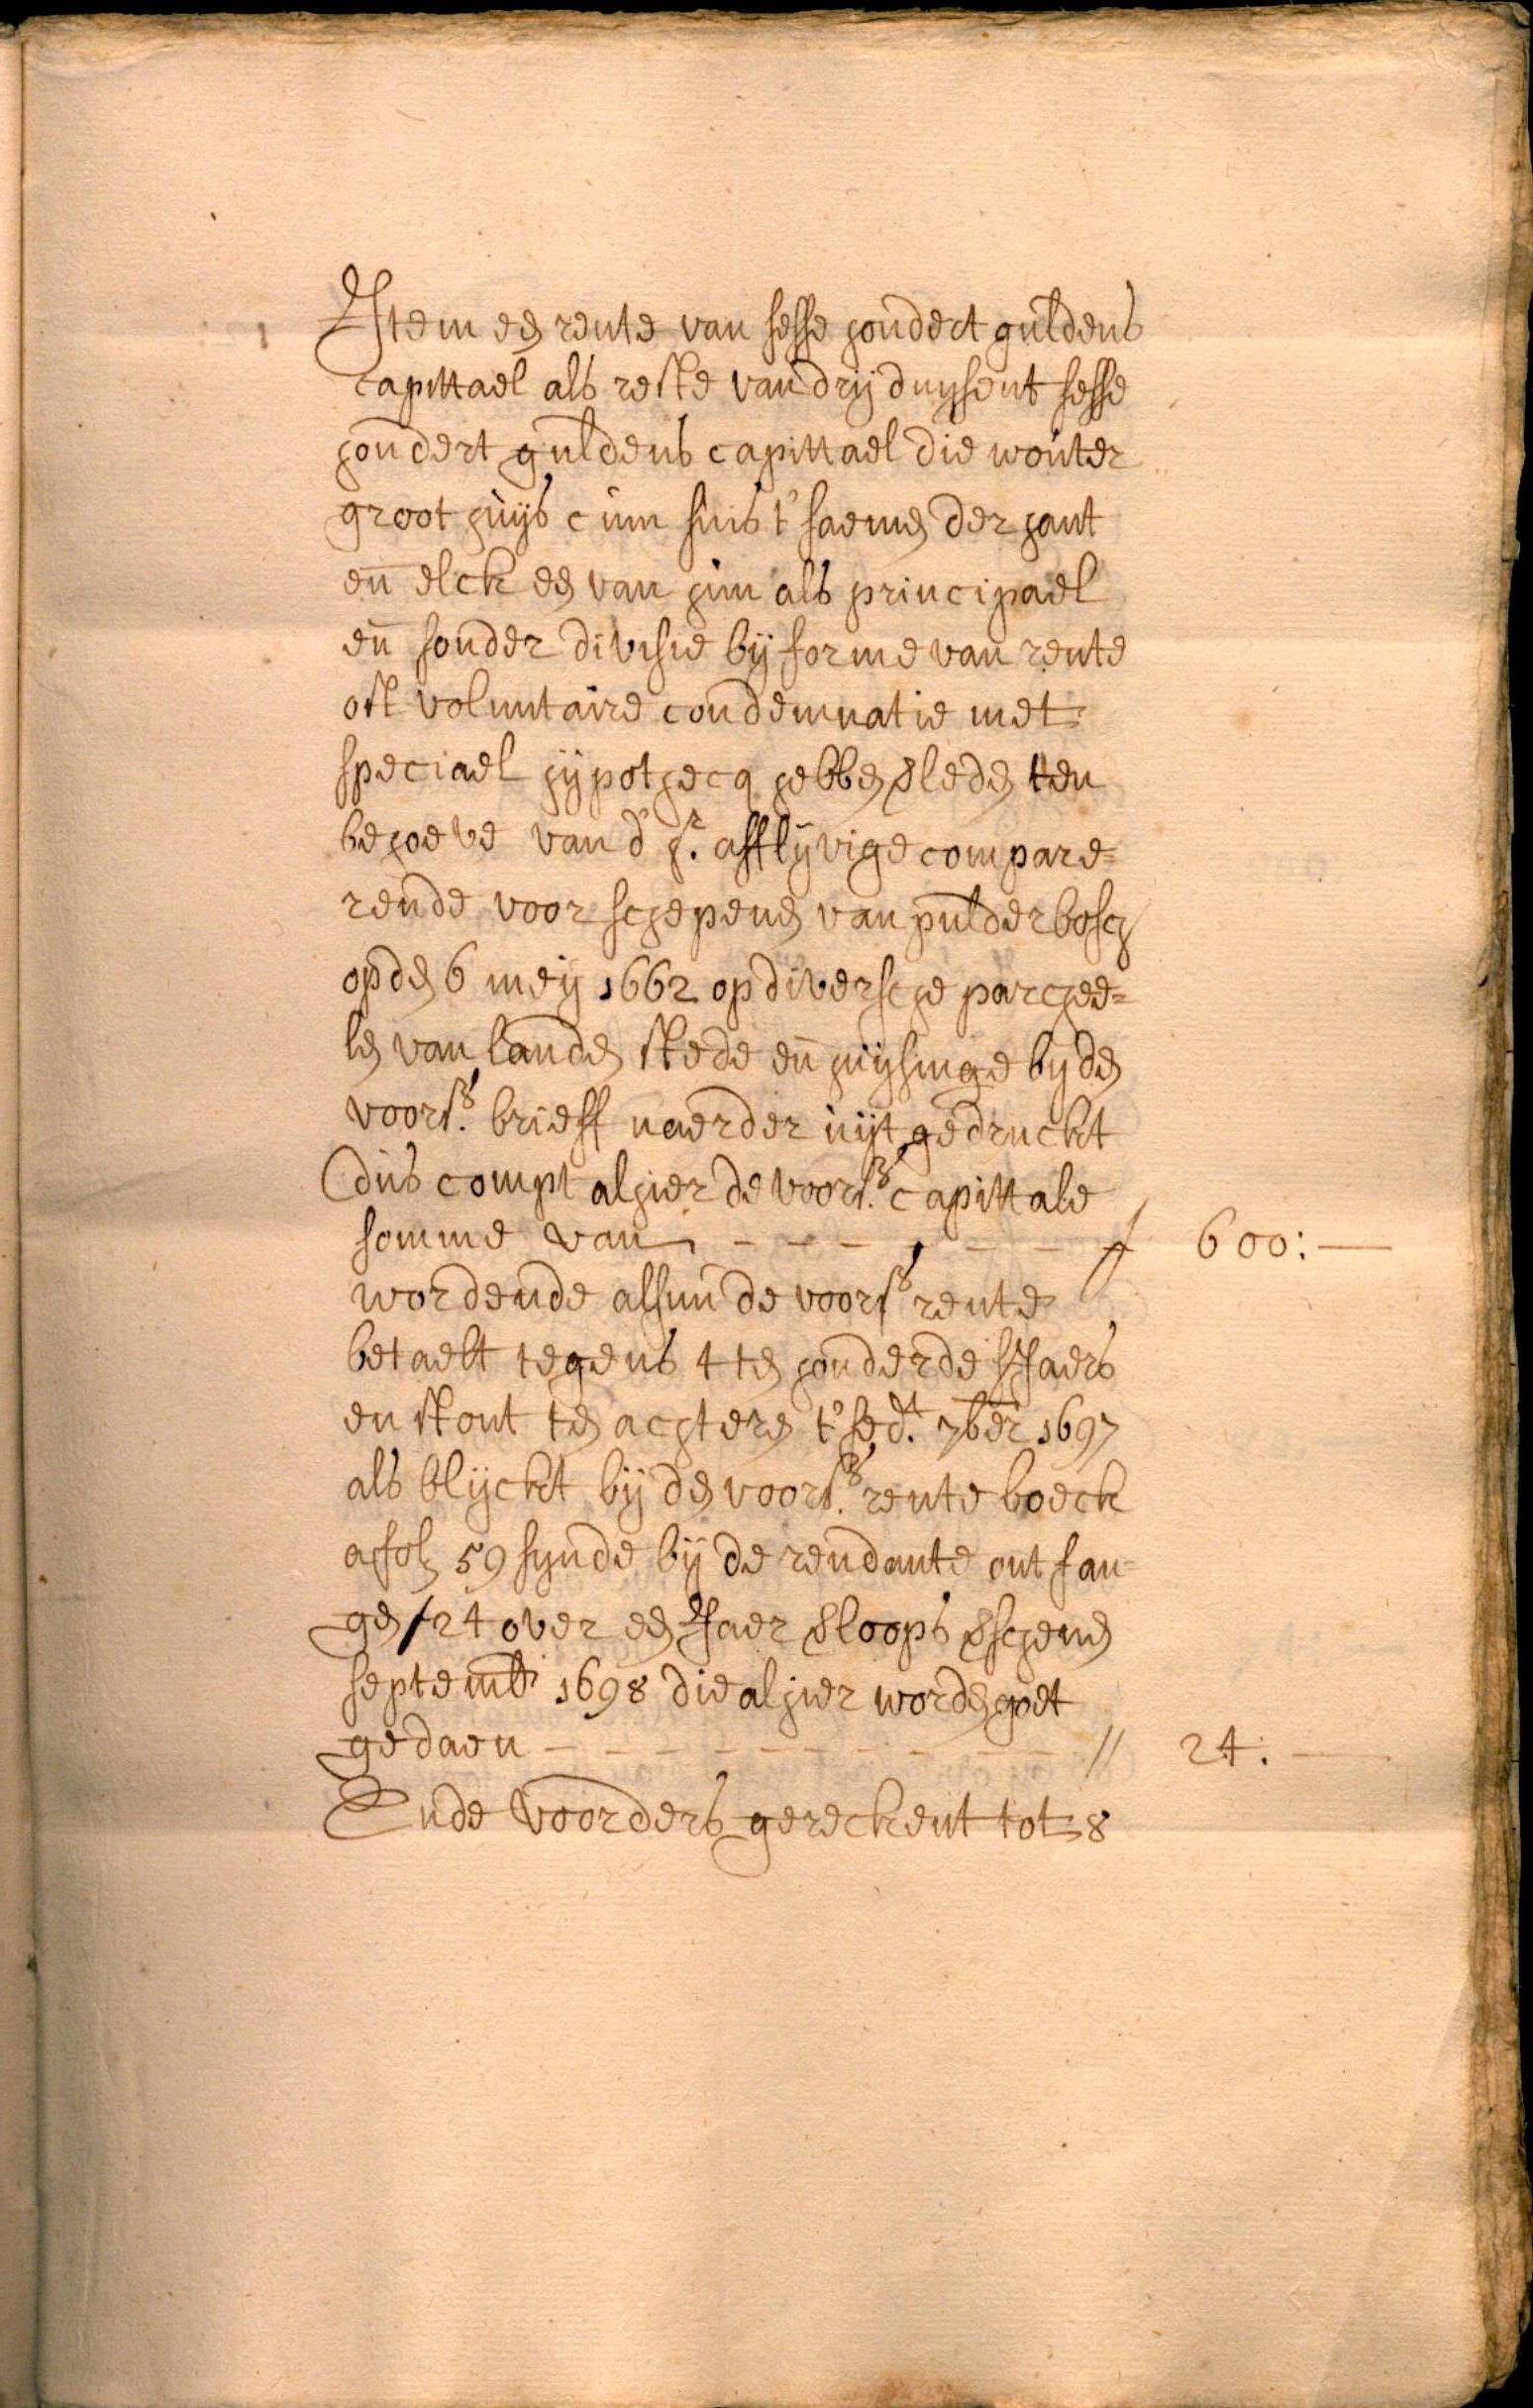 Item een rente van sesse hondert guldens
capittael als reste van drij duysent sesse
hondert guldens capittael die wouter
groot huijs cum suis t'saemen der hant
en̄ elck een van hun als principael
en̄ sonder divisie bij forme van rente
oft voluntaire condemnatie met
speciael hijpothecq hebben vleden ten
behoeve van d'hr. afflijvige compare=
rende voor schepenen van pulderbosch
op den 6 meij 1662 op diversche parchee=
len van landen stede en̄ huijsinge bij den
voors. brieff naerder uijtgedruckt
dus compt alhier de voors. capittale
somme van - - - - - - f 600:—
wordende alsnu de voors rente
betaelt tegens 4 ten honderde s'Jaers
en stont ten achteren t'sedt. 7ber 1697
als blijckt bij den voors. rente boeck
a fol 59 synde bij de rendante ontfan-
gen f 24 over een Jaer vloops vschenen
septemb 1698 die alhier worden goet
gedaen - - - - - - - - - - // 24.—
Ende voorders gereckent tot 8